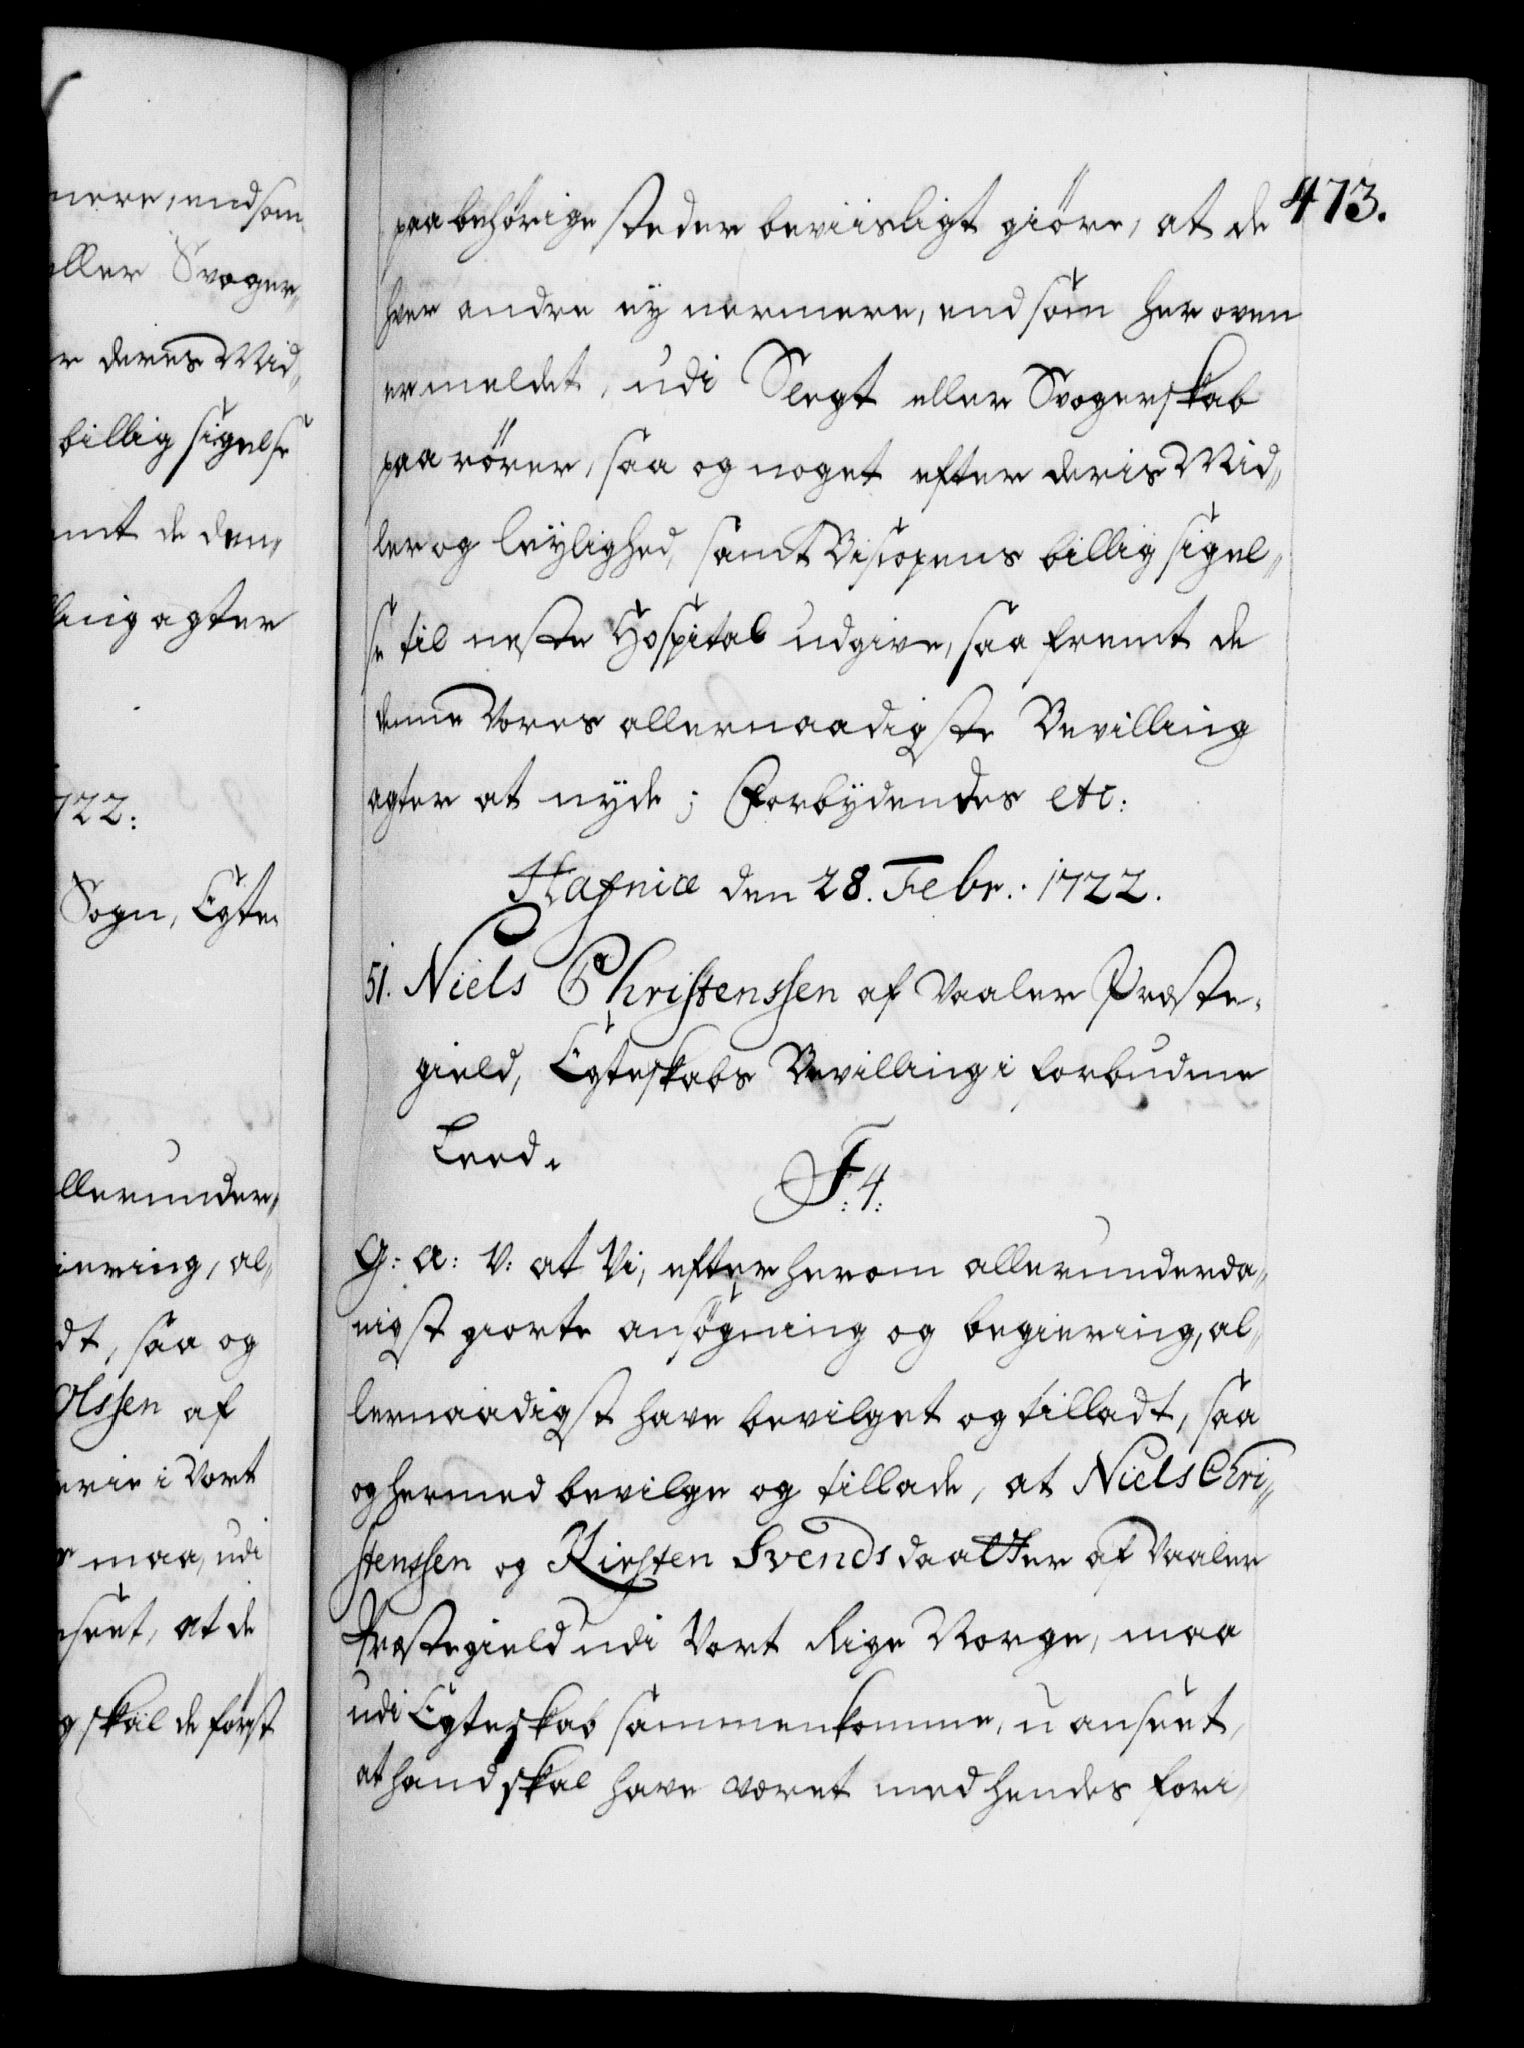 nere, end som
eller Svoger„
r deres Mid„
billig sigelse
amt de den„
lling agter
722:
Sogn, Egte„
llerunder„
iering, al„
dt, saa og
Olssen af
erie i Vort
maa, udi
nseet, at de
og skal de først
473.
paa behørige steder beviisligt giöre, at de
hver andre ey nermere, end som her oven
er meldet, udi Slegt eller Svogerskab
paarörer, saa og noget efter deris Mid„
ler og leylighed, samt Biscopens billig sigel„
se til neste Hospital udgive, saa fremt de
denne Vores allernaadigste Bevilling
agter at nyde; Forbydendes etc:
Hafniæ den 28. Febr: 1722.
51. Niels Christenssen af Vaaler Præste„
gield, Egteskabs Bevilling i forbudne
Leed.
F: 4:
G: A: V: at Vi, efter herom allerunderda„
nigst giorte ansøgning og begiering, al„
lernaadigst have bevilget og tilladt, saa
og hermed bevilge og tillade, at Niels Chri„
stenssen og Kirsten Svends daatter af Vaaler
Præstegield udi Vort Rige Norge, maa
udi Egteskab sammenkomme, uanseet,
at hand skal have været med hendes fori„